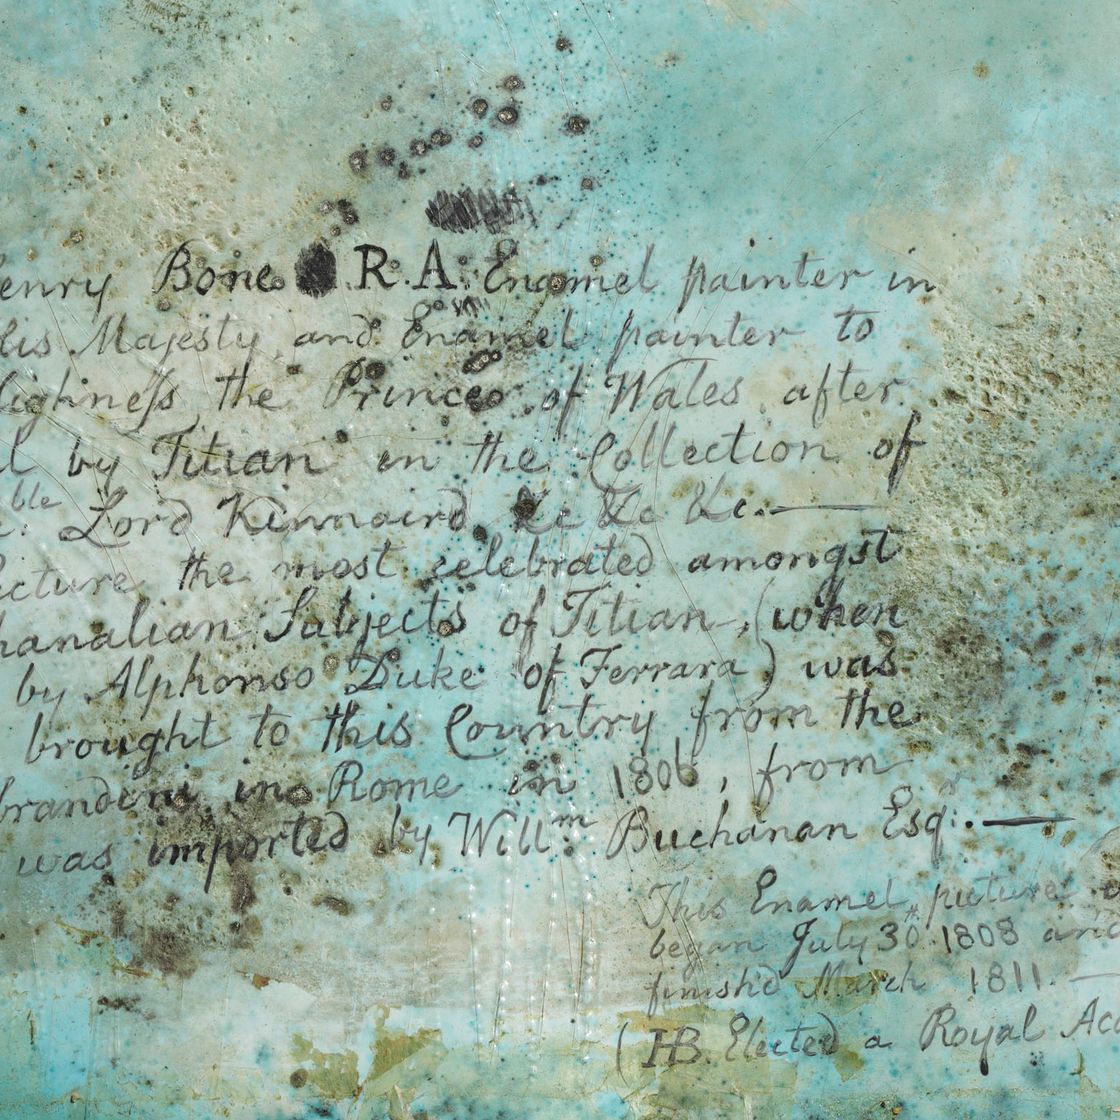 enry Bone R.A. Enamel painter in
His Majesty, and Enamel painter to
Highneſs the Prince of Wales, after
l by Titian in the Collection of
ble Lord Kinnaird &c &c &c. —
icture the most celebrated amongst
hanalian Subjects of Titian, (when
by Alphonso Duke of Ferrara) was
brought to this Country from the
brandini in Rome in 1806, from
was imported by Willm. Buchanan Esqr. —
This Enamel picture
began July 30 1808 and
finish'd March 1811. —
(HB. Elected a Royal Ac